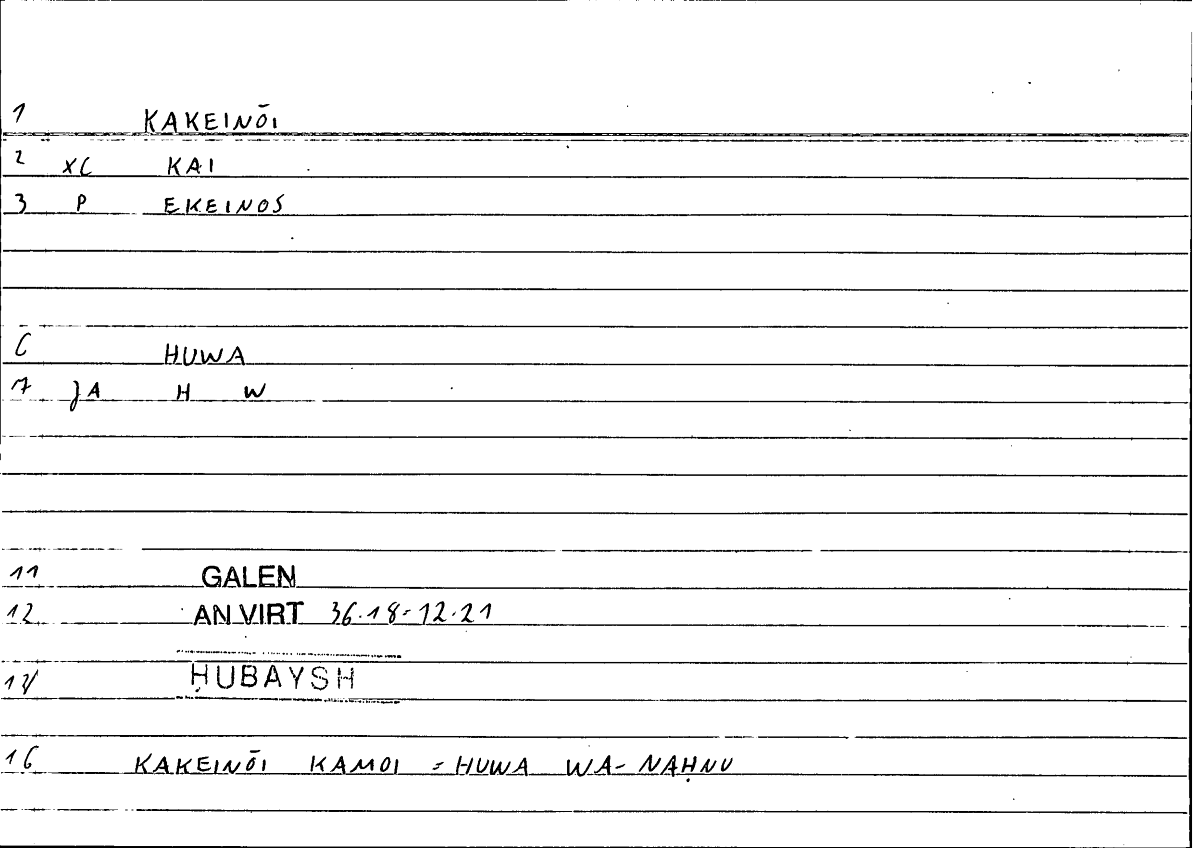 1 KAKEINŌI
2 XC KAI
3 P EKEINOS
6 HUWA
7 JA H W
11 GALEN
12 AN VIRT 36.18=12.21
14 ḤUBAYSH
16 KAKEINŌI KAMOI = HUWA WA-NAḤNU